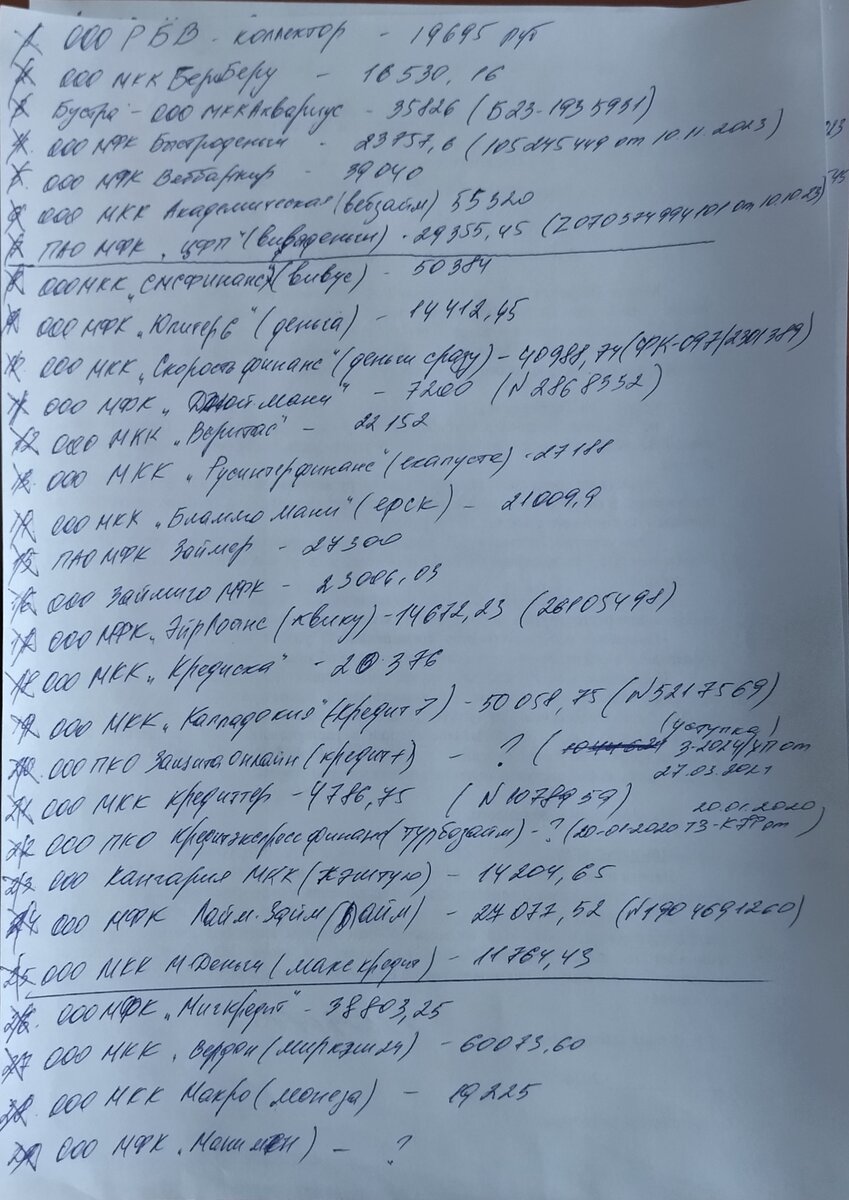 1. ООО РБВ - коллектор - 19695 руб
2. ООО МКК БериБеру - 16530,16
3. Бустра - ООО МКК Аквариус - 35826 (Б23-1935931)
4. ООО МФК Быстроденьги - 23757,6 (105245449 от 10.11.2023)
5. ООО МФК Веббанкир - 39040
6. ООО МКК Академическая (вебзайм) 55320
7. ПАО МФК „ЦФП" (виваденьги) - 29355,45 (Z070374994101 от 10.10.23)
8. ООО МКК „Смсфинанс" (вивус) - 50384
9. ООО МФК „Юпитер6" (деньга) - 14412,45
10. ООО МКК „Скорость финанс" (деньги сразу) - 40988,74 (ФК-097/2301389)
11. ООО МФК „Джой мани" - 7200 (N2868332)
12. ООО МКК „Веритас" - 22152
13. ООО МКК „Русинтерфинанс" (екапуста) - 27188
14. ООО МКК „Бламмо Мани" (ерск) - 21009,9
15. ПАО МФК Займер - 27300
16. ООО Займиго МФК - 23006,03
17. ООО МФК „ЭйрЛоанс (квику) - 14672,23 (26805498)
18. ООО МКК „Кредиска" - 20376
19. ООО МКК „Каппадокия" (кредит7) - 50058,75 (N5217569)
(уступка)
20. ООО ПКО Защита онлайн (кредит+) - ? ( 3-2024/ХП от
27.03.2024
21. ООО МКК Кредиттер - 4786,75 (N1078959)
20.01.2020
22. ООО ПКО Кредитэкспресс финанс (турбозайм) - ? (20-01-2020 ТЗ-КЭФ от )
23. ООО Кангария МКК (Кэштую) - 14204,65
24. ООО МФК Лайм-Займ (Лайм) - 27077,52 (N1904691260)
25. ООО МКК М-Деньги (макс кредит) - 11764,43
26. ООО МФК „Мигкредит" - 38803,25
27. ООО МКК „Вердон (миркэш24) - 60073,60
28. ООО МКК Макро (монеза) - 19225
29. ООО МФК „Манимен) - ?